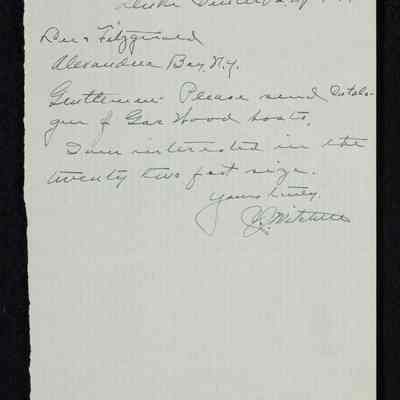 Fitzgerald
Alexandria Bay, N.Y.
Gentlemen: Please send Catalo-
gue of Gar Wood boats.
I am interested in the
twenty two foot size.
Yours truly,
Mitchell